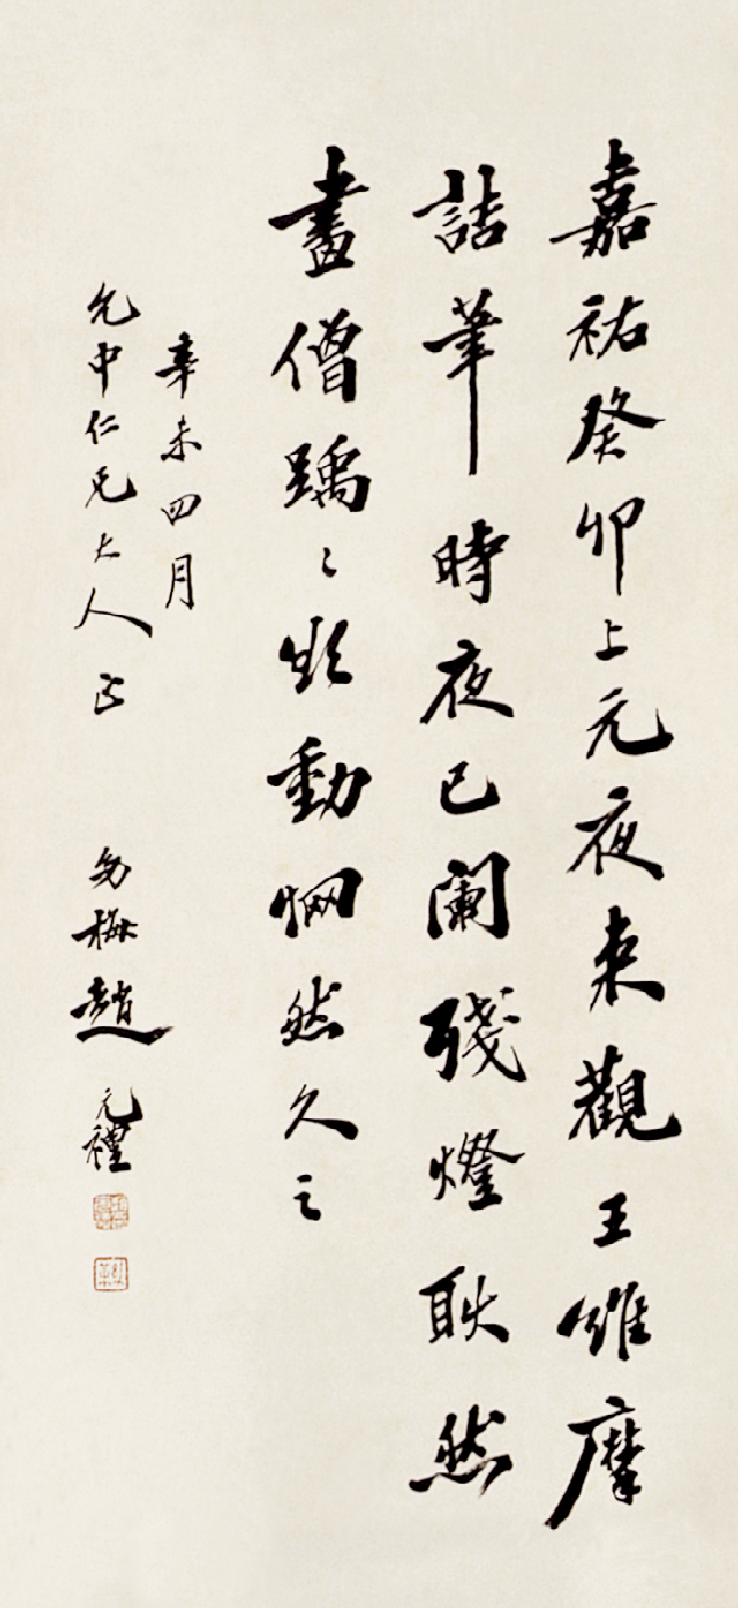 嘉祐癸卯上元夜來觀王維摩
詰筆時夜已闌殘燈耿然
畫僧踽〻欲動惘然久之
辛未四月
允中仁兄大人正 幼梅趙元禮